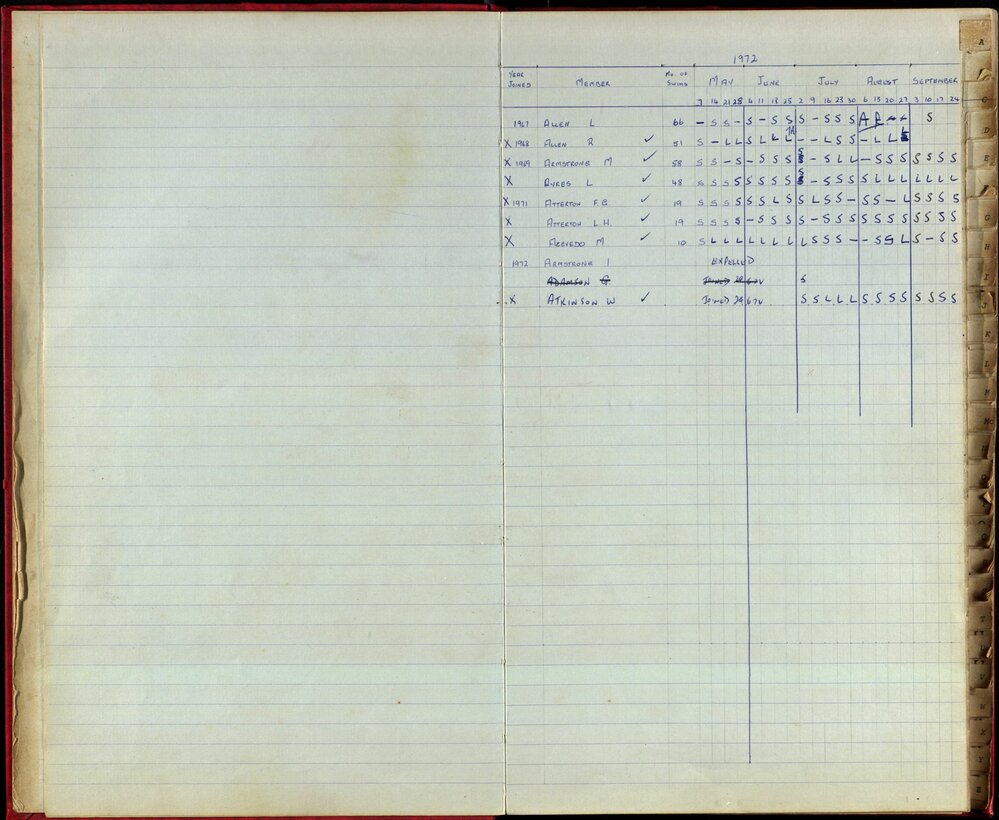 1972
YEAR JOINED MEMBER No OF SWIMS MAY JUNE JULY AUGUST SEPTEMBER
7 14 21 28 4 11 18 25 2 9 16 23 30 6 13 20 27 3 10 17 24
1967 ALLEN L 66 – S S – S – S S S – S S S S
X 1968 ALLEN R ✓ 51 S – L L S L L L – – L S S – L L
X 1969 ARMSTRONG M ✓ 58 S S – S – S S S S – S L L – S S S S S S S
X AYRES L ✓ 48 S S S S S S S S S – S S S S L L L L L L L
X 1971 ATTERTON F.G. ✓ 19 S S S S S S L S S L S S – S S – L S S S S
X ATTERTON L.H. ✓ 19 S S S S – S S S S – S S S S S S S S S S S
X AZEVEDO M ✓ 10 S L L L L L L L L S S S – – S S L S – S S
1972 ARMSTRONG I EXPELLED
ADAMSON G JOINED S
X ATKINSON W ✓ JOINED S S L L L S S S S S S S S
A
C
D
E
G
H
I
J
K
L
M
Mc
N
T
W
X
Y
Z